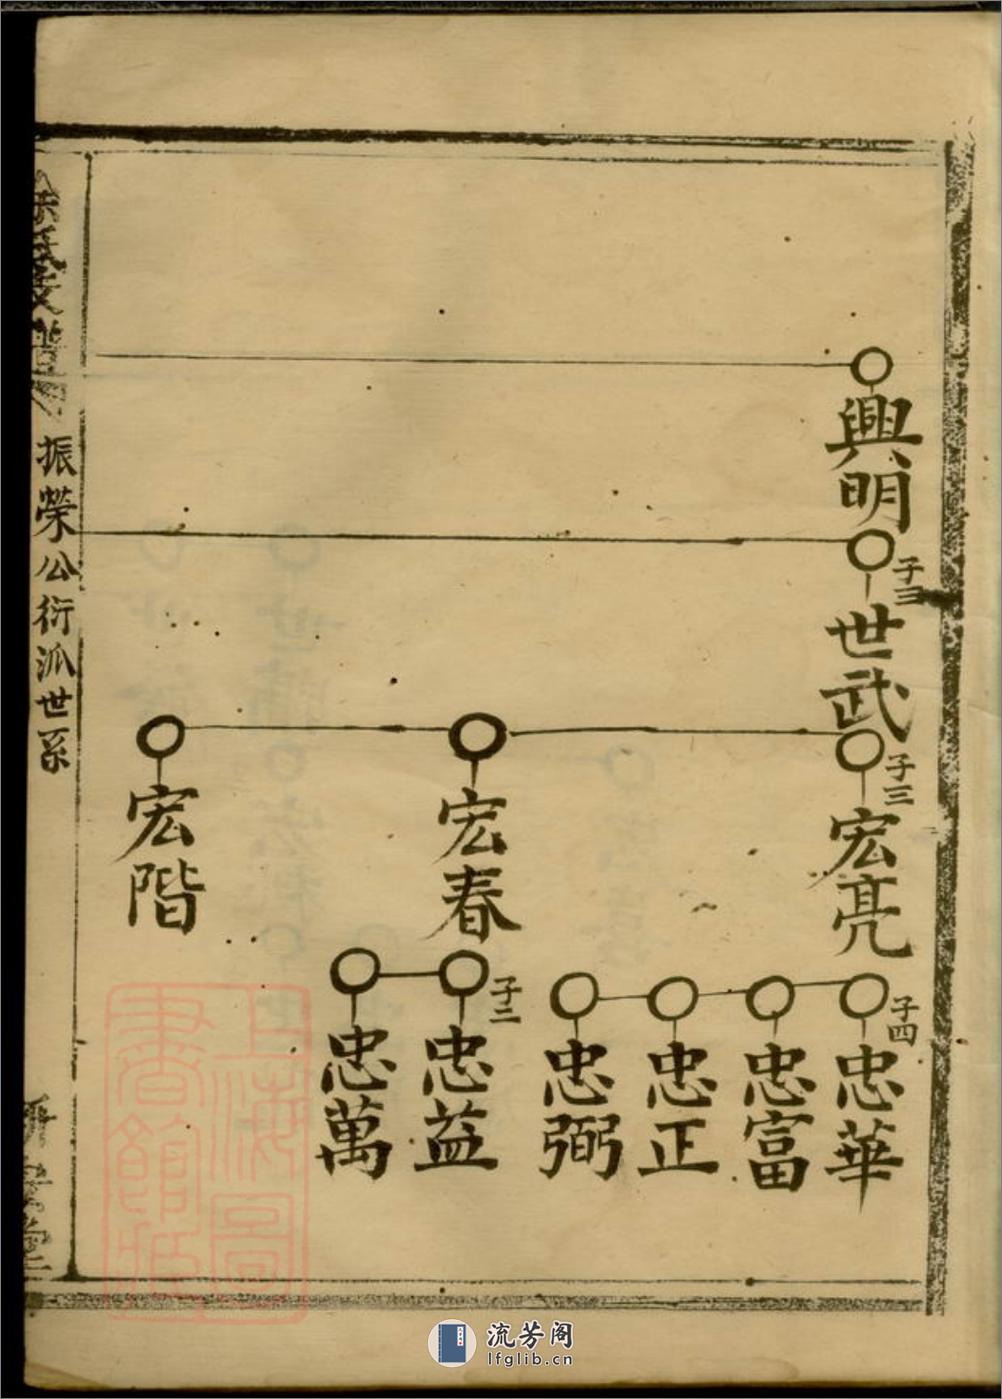 興明
子三
世武
子三
宏亮
子四
忠華
忠富
忠正
忠弼
宏春
子二
忠益
忠萬
宏階
氏支譜
振榮公衍派世系
上海圖書館藏
流芳阁
lfglib.cn